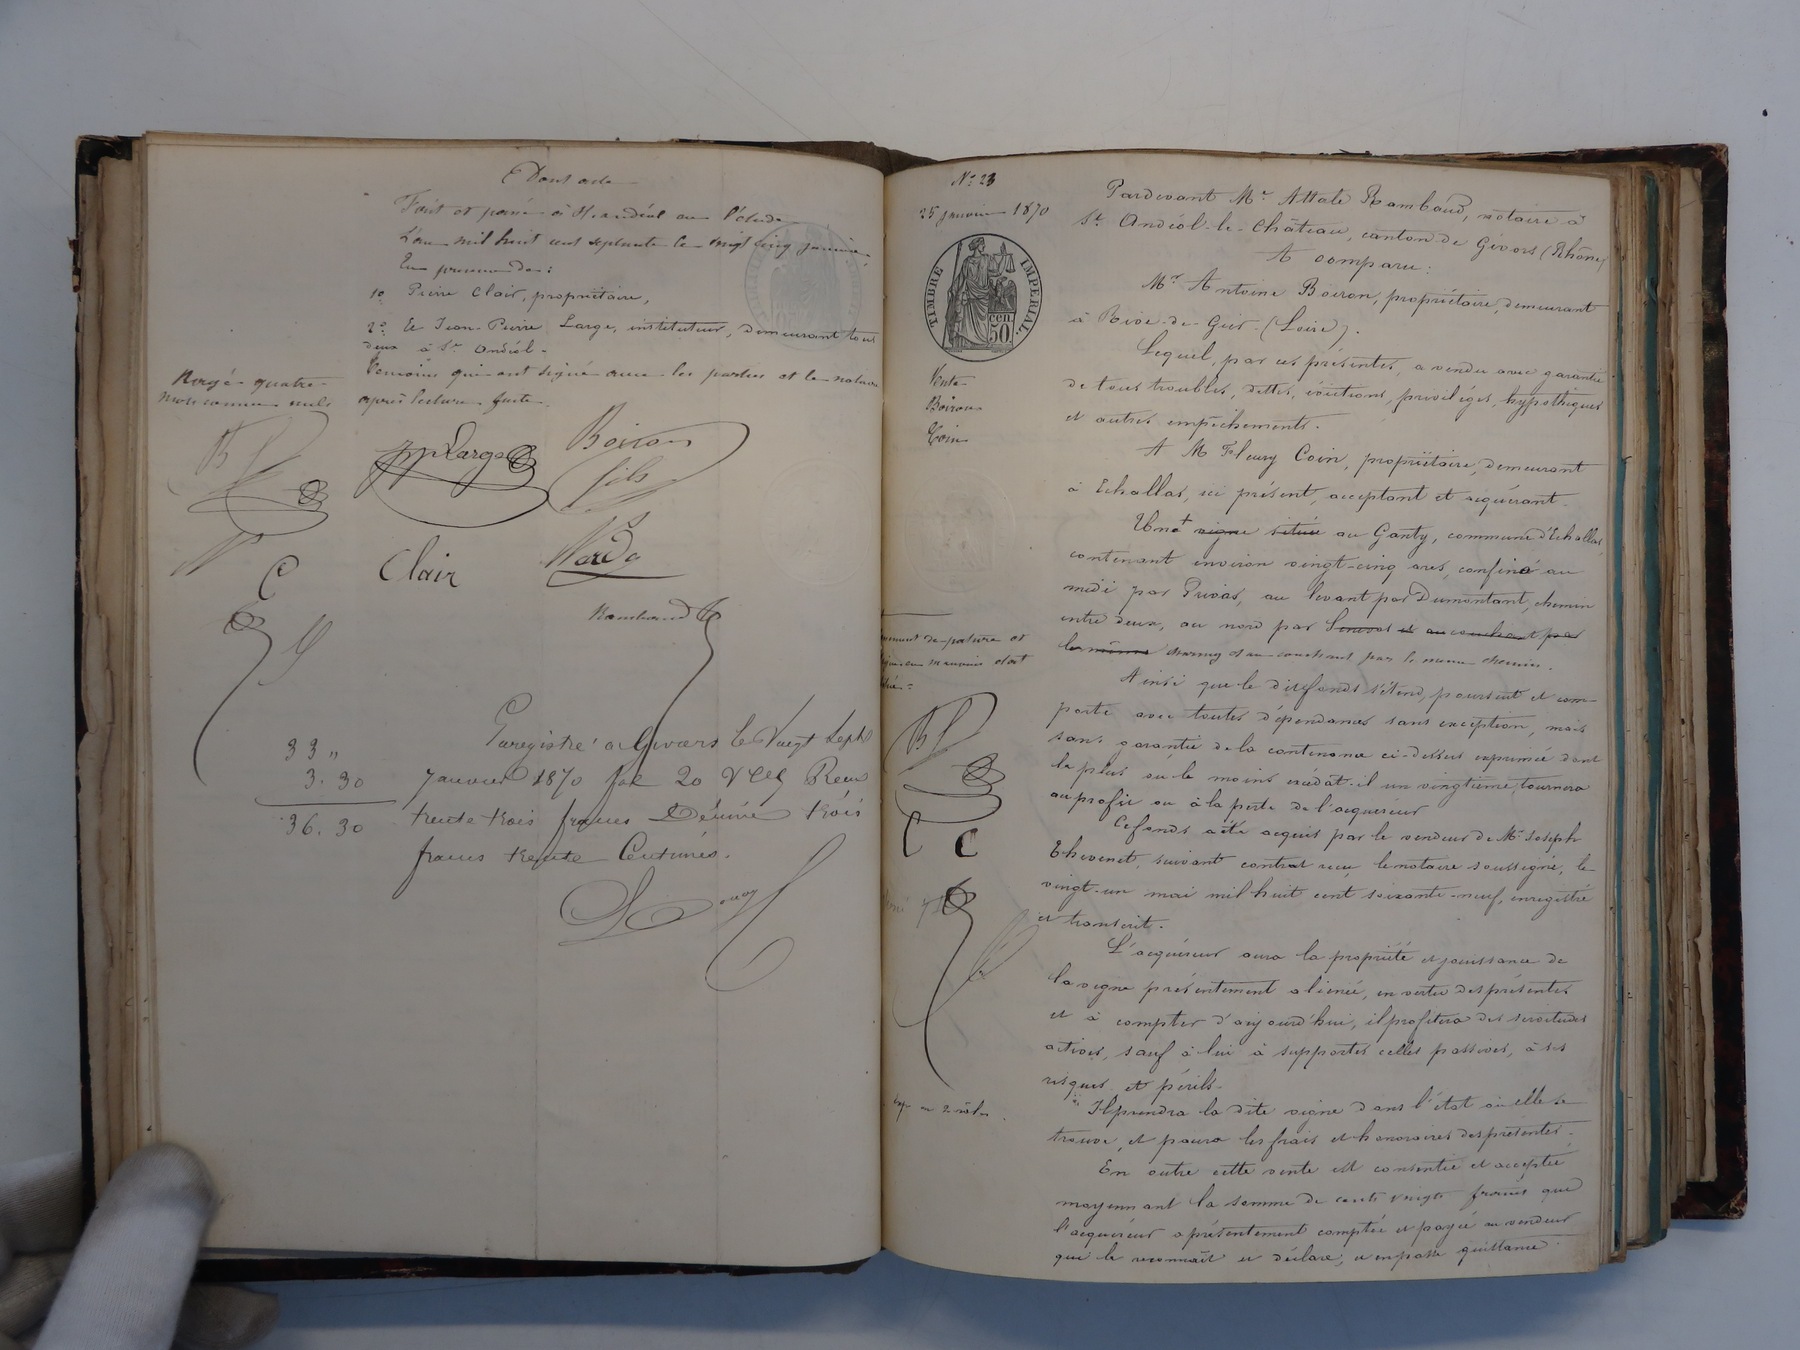 Dont acte
Fait et passé à St Andéol en l'étude
L'an mil huit cent septante le vingt cinq janvier,
En présence de :
1º Pierre Clair, propriétaire,
2º Et Jean-Pierre Large, instituteur, demeurant tous
deux à St Andéol.
Témoins qui ont signé avec les parties et le notaire
après lecture faite.
Rayé quatre
mots comme nuls
B
JP Large
Boiron
fils
C
Clair
Rambaud
33 "
3.30
36.30
Enregistré à Givors le Vingt Sept
Janvier 1870 fol 20 Reçu
trente trois francs Décime trois
francs trente Centimes.
Nº 23
25 janvier 1870
TIMBRE IMPERIAL
50 cen
Vente
Boiron
Coin
Pardevant Me Attale Rambaud, notaire à
St Andéol-le-Château, canton de Givors (Rhône)
A comparu :
Mr Antoine Boiron, propriétaire, demeurant
à Rive-de-Gier (Loire).
Lequel, par ces présentes, a vendu avec garantie
de tous troubles, dettes, évictions, privilèges, hypothèques
et autres empêchements.
A M Fleury Coin, propriétaire, demeurant
à Echallas, ici présent, acceptant et acquérant
Une + vigne située au Ganty, commune d'Echallas,
contenant environ vingt-cinq ares, confiné au
midi par Privas, au levant par Dumontant, chemin
entre deux, au nord par et au couchant par
le même et au couchant par le même chemin.
Ainsi que le dit fonds s'étend, poursuit et com-
porte avec toutes dépendances sans exception, mais
sans garantie de la contenance ci-dessus exprimée dont
le plus ou le moins excédat-il un vingtième, tournera
au profit ou à la perte de l'acquéreur
Ce fonds a été acquis par le vendeur de Mr Joseph
Thevenet, suivant contrat reçu le notaire soussigné, le
vingt-un mai mil huit cent soixante-neuf, enregistré
et transcrit.
L'acquéreur aura la propriété et jouissance de
la vigne présentement aliénée, en vertu des présentes
et à compter d'aujourd'hui, il profitera des servitudes
actives, sauf à lui à supporter celles passives, à ses
risques et périls.
Il prendra la dite vigne dans l'état où elle se
trouve, et payera les frais et honoraires des présentes.
En outre cette vente est consentie et acceptée
moyennant la somme de cent vingt francs que
l'acquéreur a présentement comptée et payée au vendeur
qui le reconnaît et déclare, et en passe quittance
de pature et
en mauvais état
C C
en 2 rôles